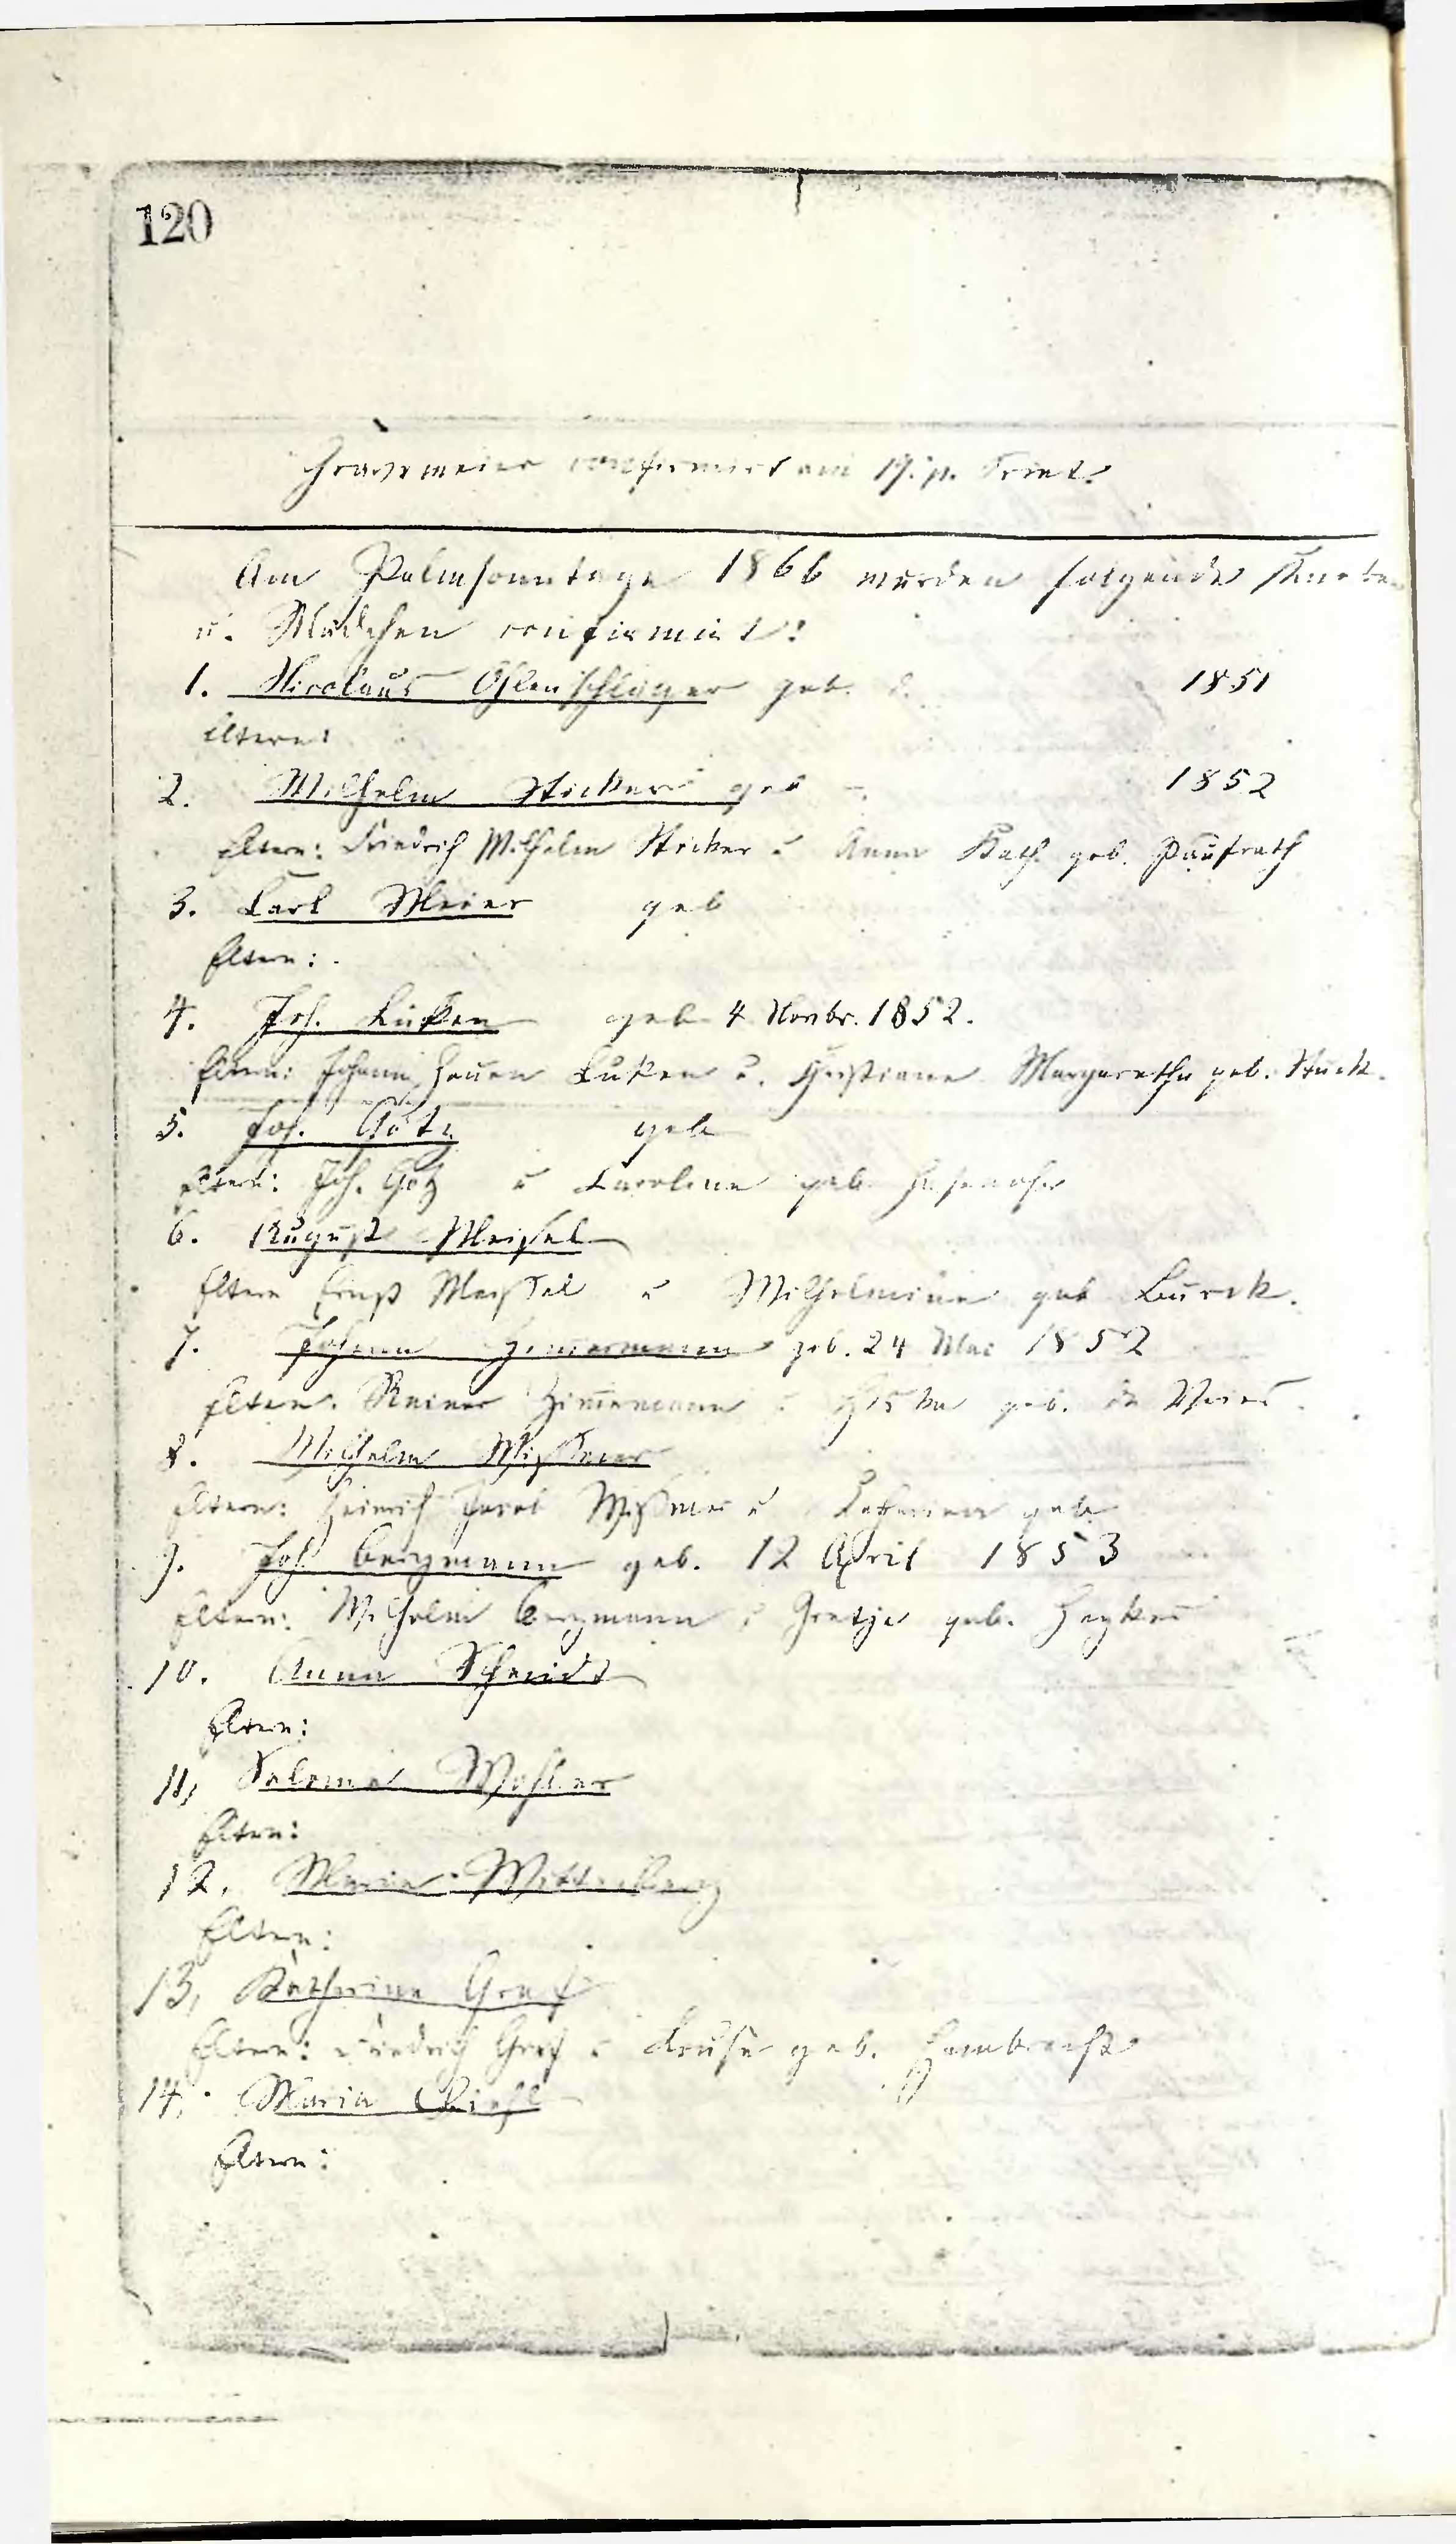 120
confirmirt am 19. p. Trint.
Am Palmsonntage 1866 wurden folgende Knaben
u. Mädchen confirmirt:
1. Nicolaus Ohlenschlager geb. d. 1851
Eltern:
2. Wilhelm Sticker geb 1852
Eltern: Friedrich Wilhelm Sticker u Anna Kath. geb. Paufrath
3. Carl Meier geb
Eltern:
4. Joh. Lüken geb 4 Novbr. 1852.
Eltern: Johann Lüken u. Christiane Margaretha geb. Stuck.
5. Joh. Götz geb
Eltern: Joh. Götz u Caroline geb.
6. August Meißel
Eltern Ernst Meißel u Wilhelmine geb
7. Johann Zimmermann geb. 24 Mai 1852
Eltern. Reiner Zimmermann u geb. de Vries.
8. Wilhelm Mißmer
Eltern: Heinrich Jacob Mißmer u geb
9. Joh. Bergmann geb. 12 April 1853
Eltern: Wilhelm Bergmann u Gretje geb.
10. Anna Schmidt
Eltern:
11, Salome
Eltern:
12. Maria Wittenberg
Eltern:
13, Katharina Graf
Eltern: Friedrich Graf u geb. Hambrecht
14, Maria
Eltern: